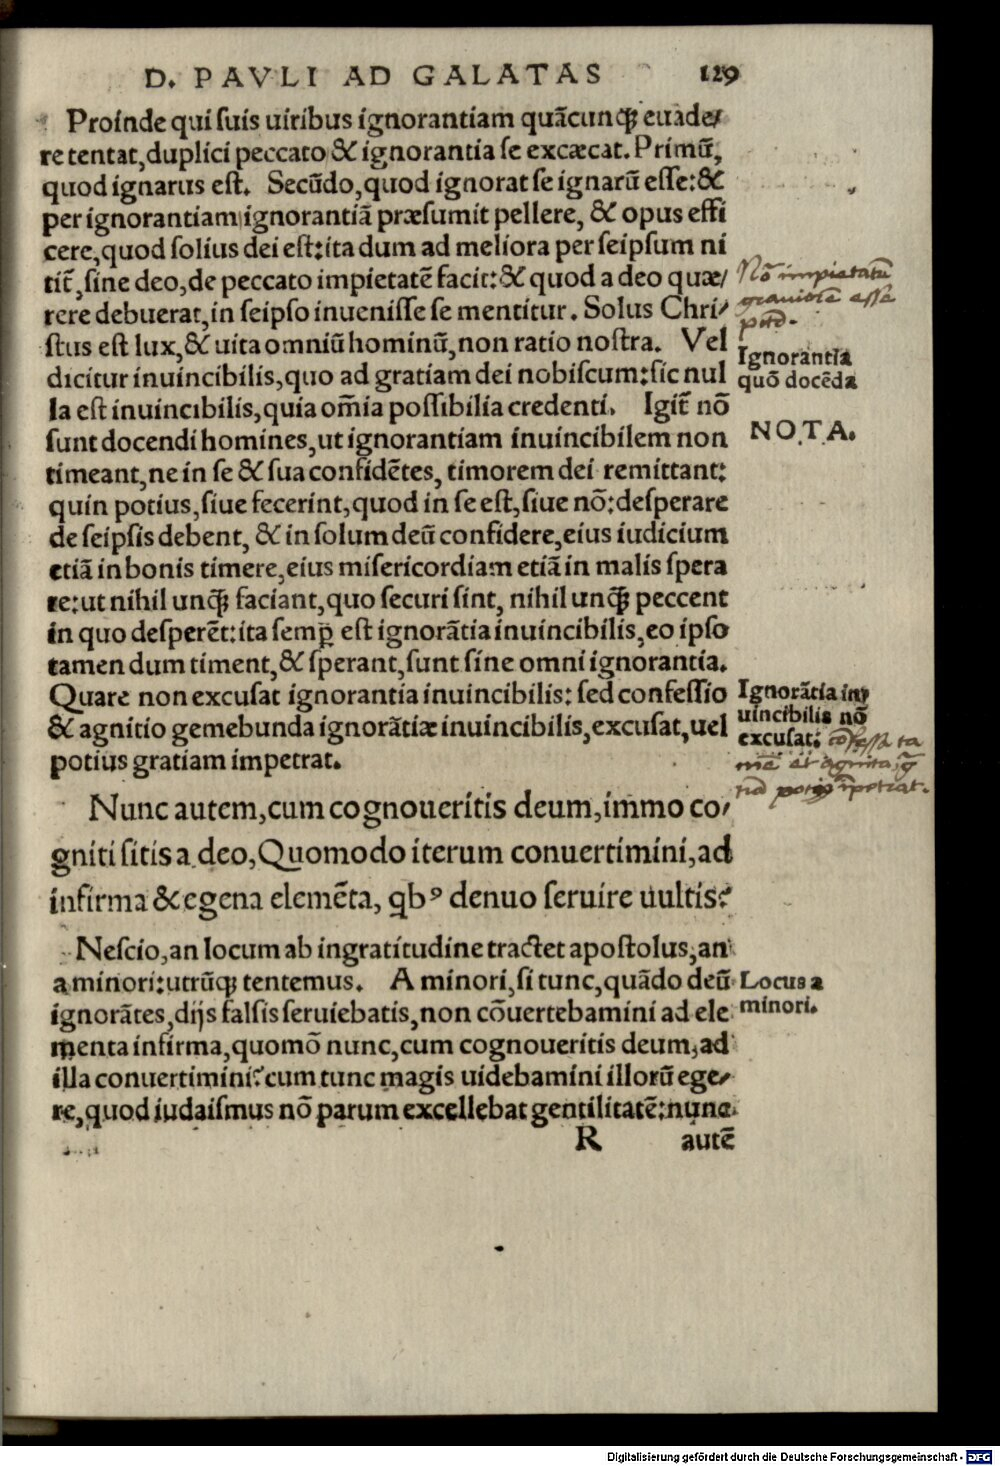 D. PAVLI AD GALATAS 129
Proinde qui ſuis uiribus ignorantiam quãcunq꜒ euade/
re tentat,duplici peccato & ignorantia ſe excæcat. Primũ,
quod ignarus eſt. Secũdo,quod ignorat ſe ignarũ eſſe:&
per ignorantiam ignorantiã præſumit pellere, & opus effi
cere,quod ſolius dei eſt:ita dum ad meliora per ſeipſum ni
tit̃,ſine deo,de peccato impietatẽ facit:& quod a deo quæ/
rere debuerat,in ſeipſo inueniſſe ſe mentitur. Solus Chri/
ſtus eſt lux,& uita omniũ hominũ,non ratio noſtra. Vel
dicitur inuincibilis,quo ad gratiam dei nobiſcum:ſic nul
la eſt inuincibilis,quia om̃ia poſſibilia credenti. Igit̃ nõ
ſunt docendi homines,ut ignorantiam inuincibilem non
timeant,ne in ſe & ſua confidẽtes, timorem dei remittant:
quin potius,ſiue fecerint,quod in ſe eſt,ſiue nõ:deſperare
de ſeipſis debent, & in ſolum deũ confidere,eius iudicium
etiã in bonis timere,eius miſericordiam etiã in malis ſpera
re:ut nihil unq̃ꝫ faciant,quo ſecuri ſint, nihil unq̃ꝫ peccent
in quo deſperẽt:ita ſemp̱ eſt ignorãtia inuincibilis,eo ipſo
tamen dum timent,& ſperant,ſunt ſine omni ignorantia.
Quare non excuſat ignorantia inuincibilis: ſed confeſſio
& agnitio gemebunda ignorãtiæ inuincibilis,excuſat,uel
potius gratiam impetrat.
Nõ impietatẽ
grauiorẽ eſſe
pctõ.
Ignorantia
quõ docẽda
NOTA.
Ignorãtia in/
uincibilis nõ
excuſat: cõfeſſa ta
mẽ et agnita, g̃
tiã potiꝰ ĩpetrat.
Nunc autem,cum cognoueritis deum,immo co/
gniti ſitis a deo,Quomodo iterum conuertimini,ad
infirma & egena elemẽta, qbꝰ denuo ſeruire uultis?
Neſcio,an locum ab ingratitudine tractet apoſtolus,an
a minori:utrũq꜒ tentemus. A minori,ſi tunc,quãdo deũ
ignorãtes,dijs falſis ſeruiebatis,non cõuertebamini ad ele
menta infirma,quomõ nunc,cum cognoueritis deum,ad
illa conuertimini?cum tunc magis uidebamini illorũ ege/
re,quod iudaiſmus nõ parum excellebat gentilitatẽ:nunc
Locus a
minori.
R autẽ
Digitalisierung gefördert durch die Deutsche Forschungsgemeinschaft - DFG